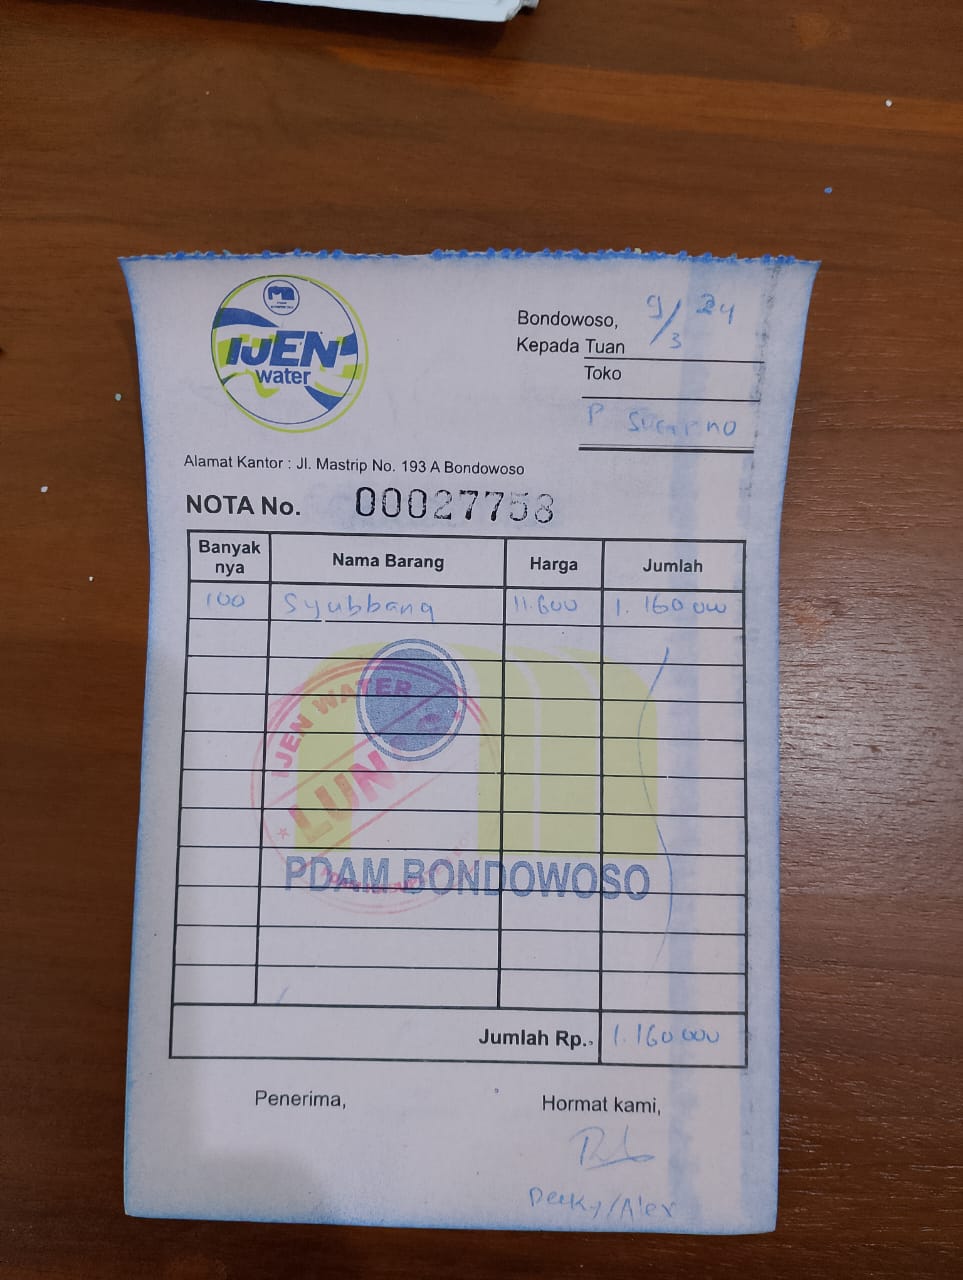 IJEN
water
Bondowoso, 9/3 24
Kepada Tuan
Toko
P Sucipno
Alamat Kantor : Jl. Mastrip No. 193 A Bondowoso
NOTA No. 00027758
Banyak nya Nama Barang Harga Jumlah
100 Syubbang 11.600 1.160 000
IJEN WATER
LUNAS
PDAM BONDOWOSO
Jumlah Rp. 1.160 000
Penerima, Hormat kami,
/Alex